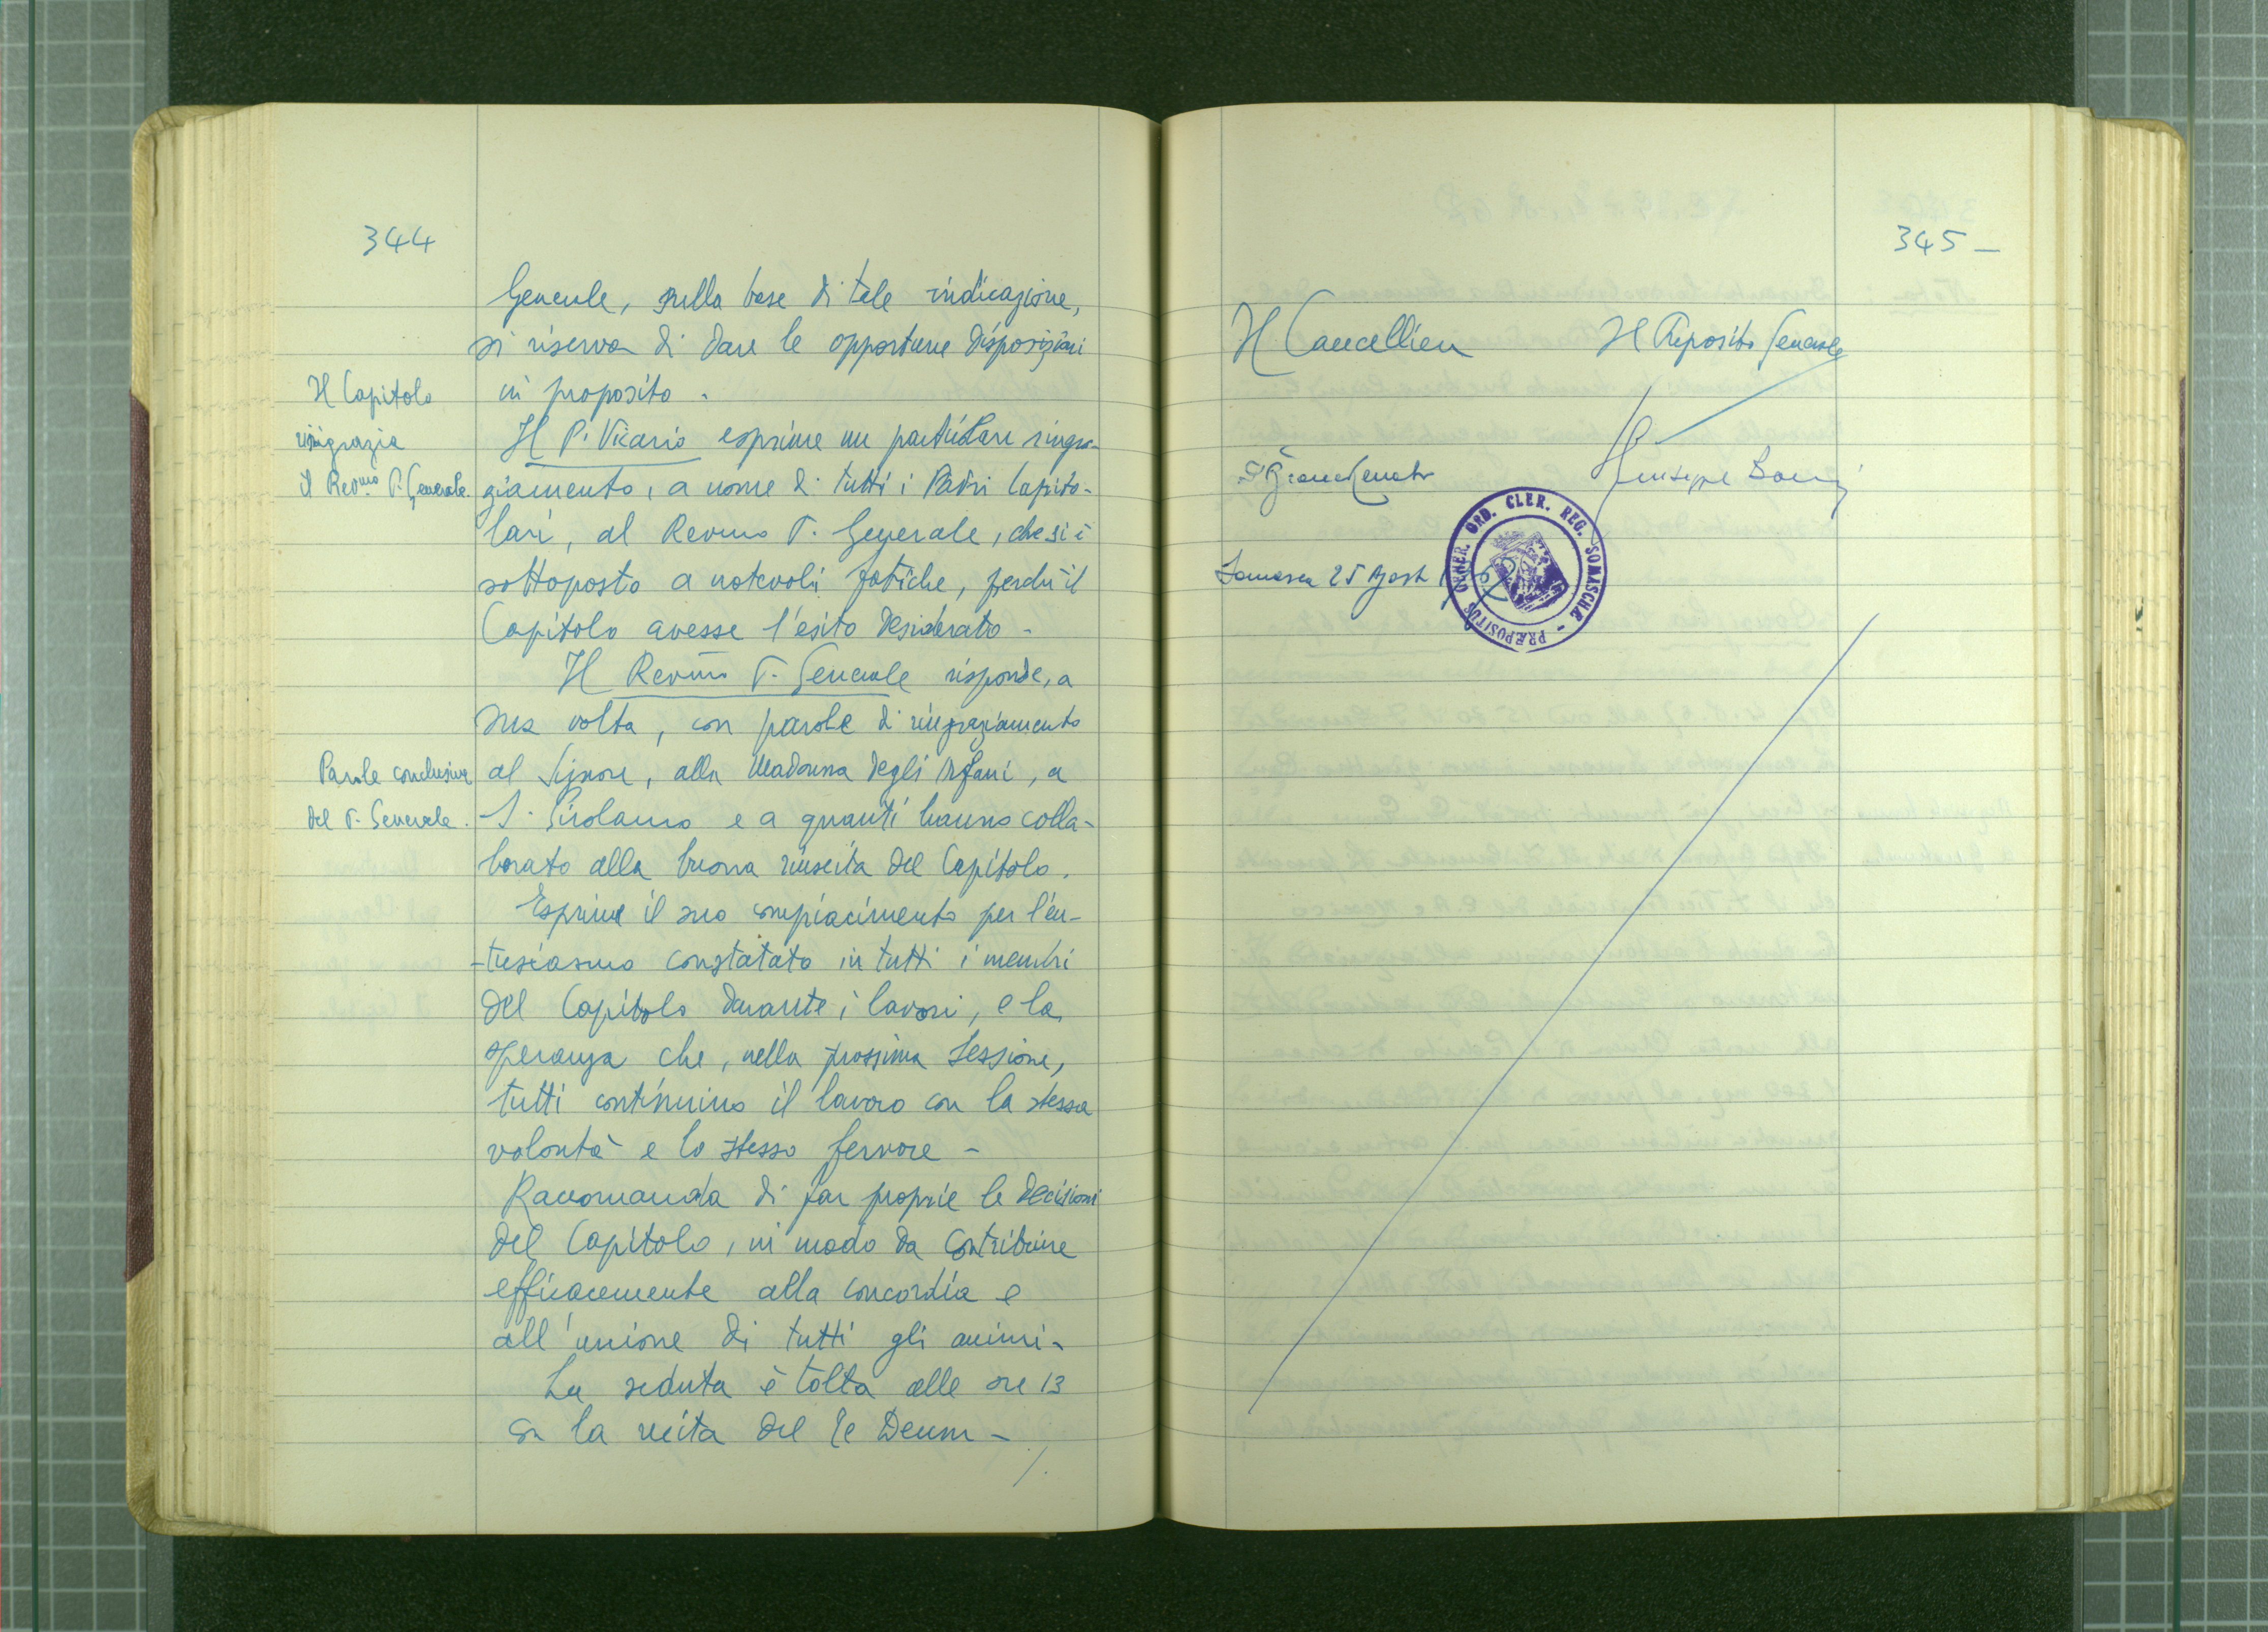 344
Generale, sulla base di tale indicazione,
si riserva di dare le opportune disposizioni
in proposito.
Il Capitolo
ringrazia
il Rev.mo P. Generale.
Il P. Vicario esprime un particolare ringra-
ziamento, a nome di tutti i Padri Capito-
lari, al Rev.mo P. Generale, che si è
sottoposto a notevoli fatiche, perché il
Capitolo avesse l'esito desiderato -
Il Rev.mo P. Generale risponde, a
sua volta, con parole di ringraziamento
Parole conclusive
del P. Generale.
al Signore, alla Madonna degli Orfani, a
S. Girolamo e a quanti hanno colla-
borato alla buona riuscita del Capitolo.
Esprime il suo compiacimento per l'en-
-tusiasmo constatato in tutti i membri
del Capitolo durante i lavori, e la
speranza che, nella prossima Sessione,
tutti continuino il lavoro con la stessa
volontà e lo stesso fervore -
Raccomanda di far proprie le decisioni
del Capitolo, in modo da contribuire
efficacemente alla concordia e
all'unione di tutti gli animi.
La seduta è tolta alle ore 13
con la recita del Te Deum -
345 -
Il Cancelliere
Il Preposito Generale
P. Giuseppe
Somasca 25 Agosto
PRÆPOSITUS GENER. ORD. CLER. REG. SOMASCHÆ -